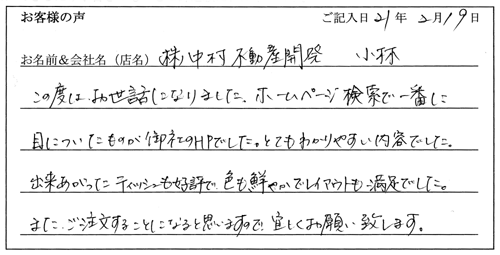 お客様の声 ご記入日 21年 2月19日
お名前&会社名(店名) (株)中村不動産開発 小林
この度は、お世話になりました。ホームページ検索で一番に
目についたものが御社のHPでした。とてもわかりやすい内容でした。
出来あがったティッシュも好評で、色も鮮やかでレイアウトも満足でした。
また、ご注文することになると思いますので宜しくお願い致します。